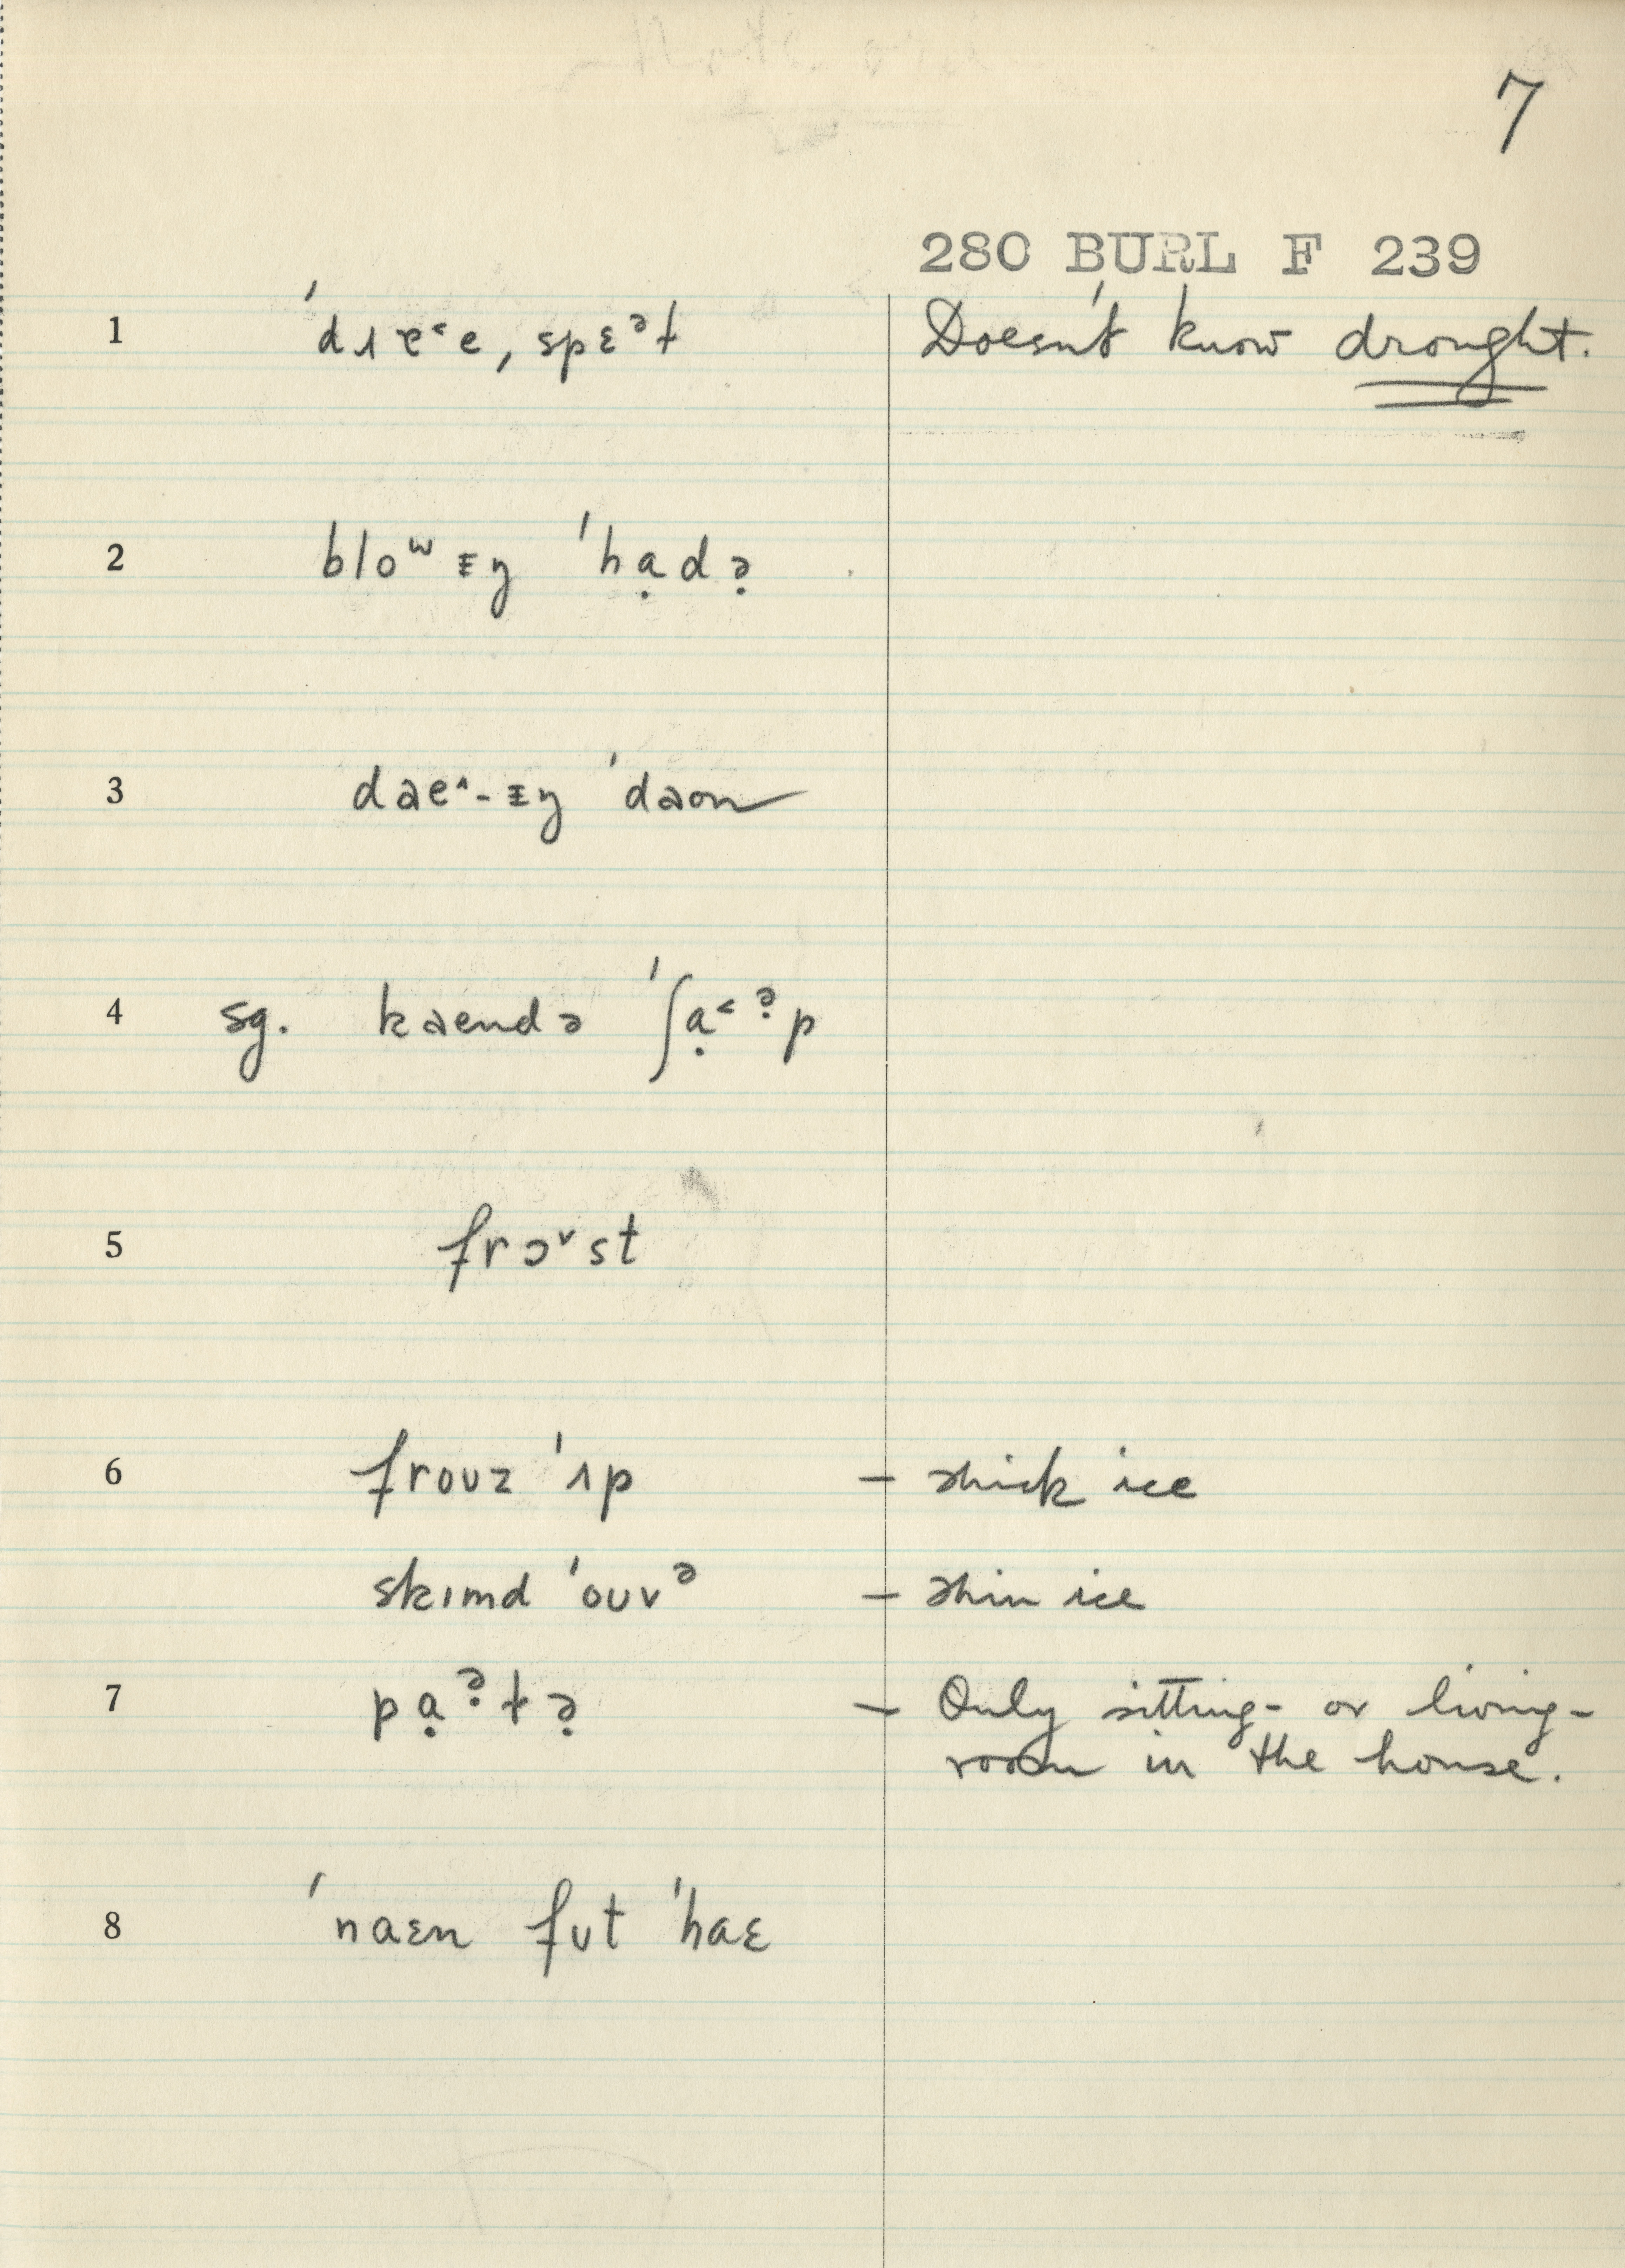 7
280 BURL F 239
1 Doesn't know drought.
2 bloʷᵻŋ ˈhạdə̣
3 dəe^-ᵻŋ ˈdəon
4 sg. kaendə ˈʃạ˂ə̣p
5 frɔ˅st
6 froʊz ˈʌp – thick ice
skɪmd ˈoʊvᵊ – thin ice
7 pạə̣ɫə̣ – Only sitting- or living-
room in the house.
8 ˈnaɛn fʊt ˈhaɛ